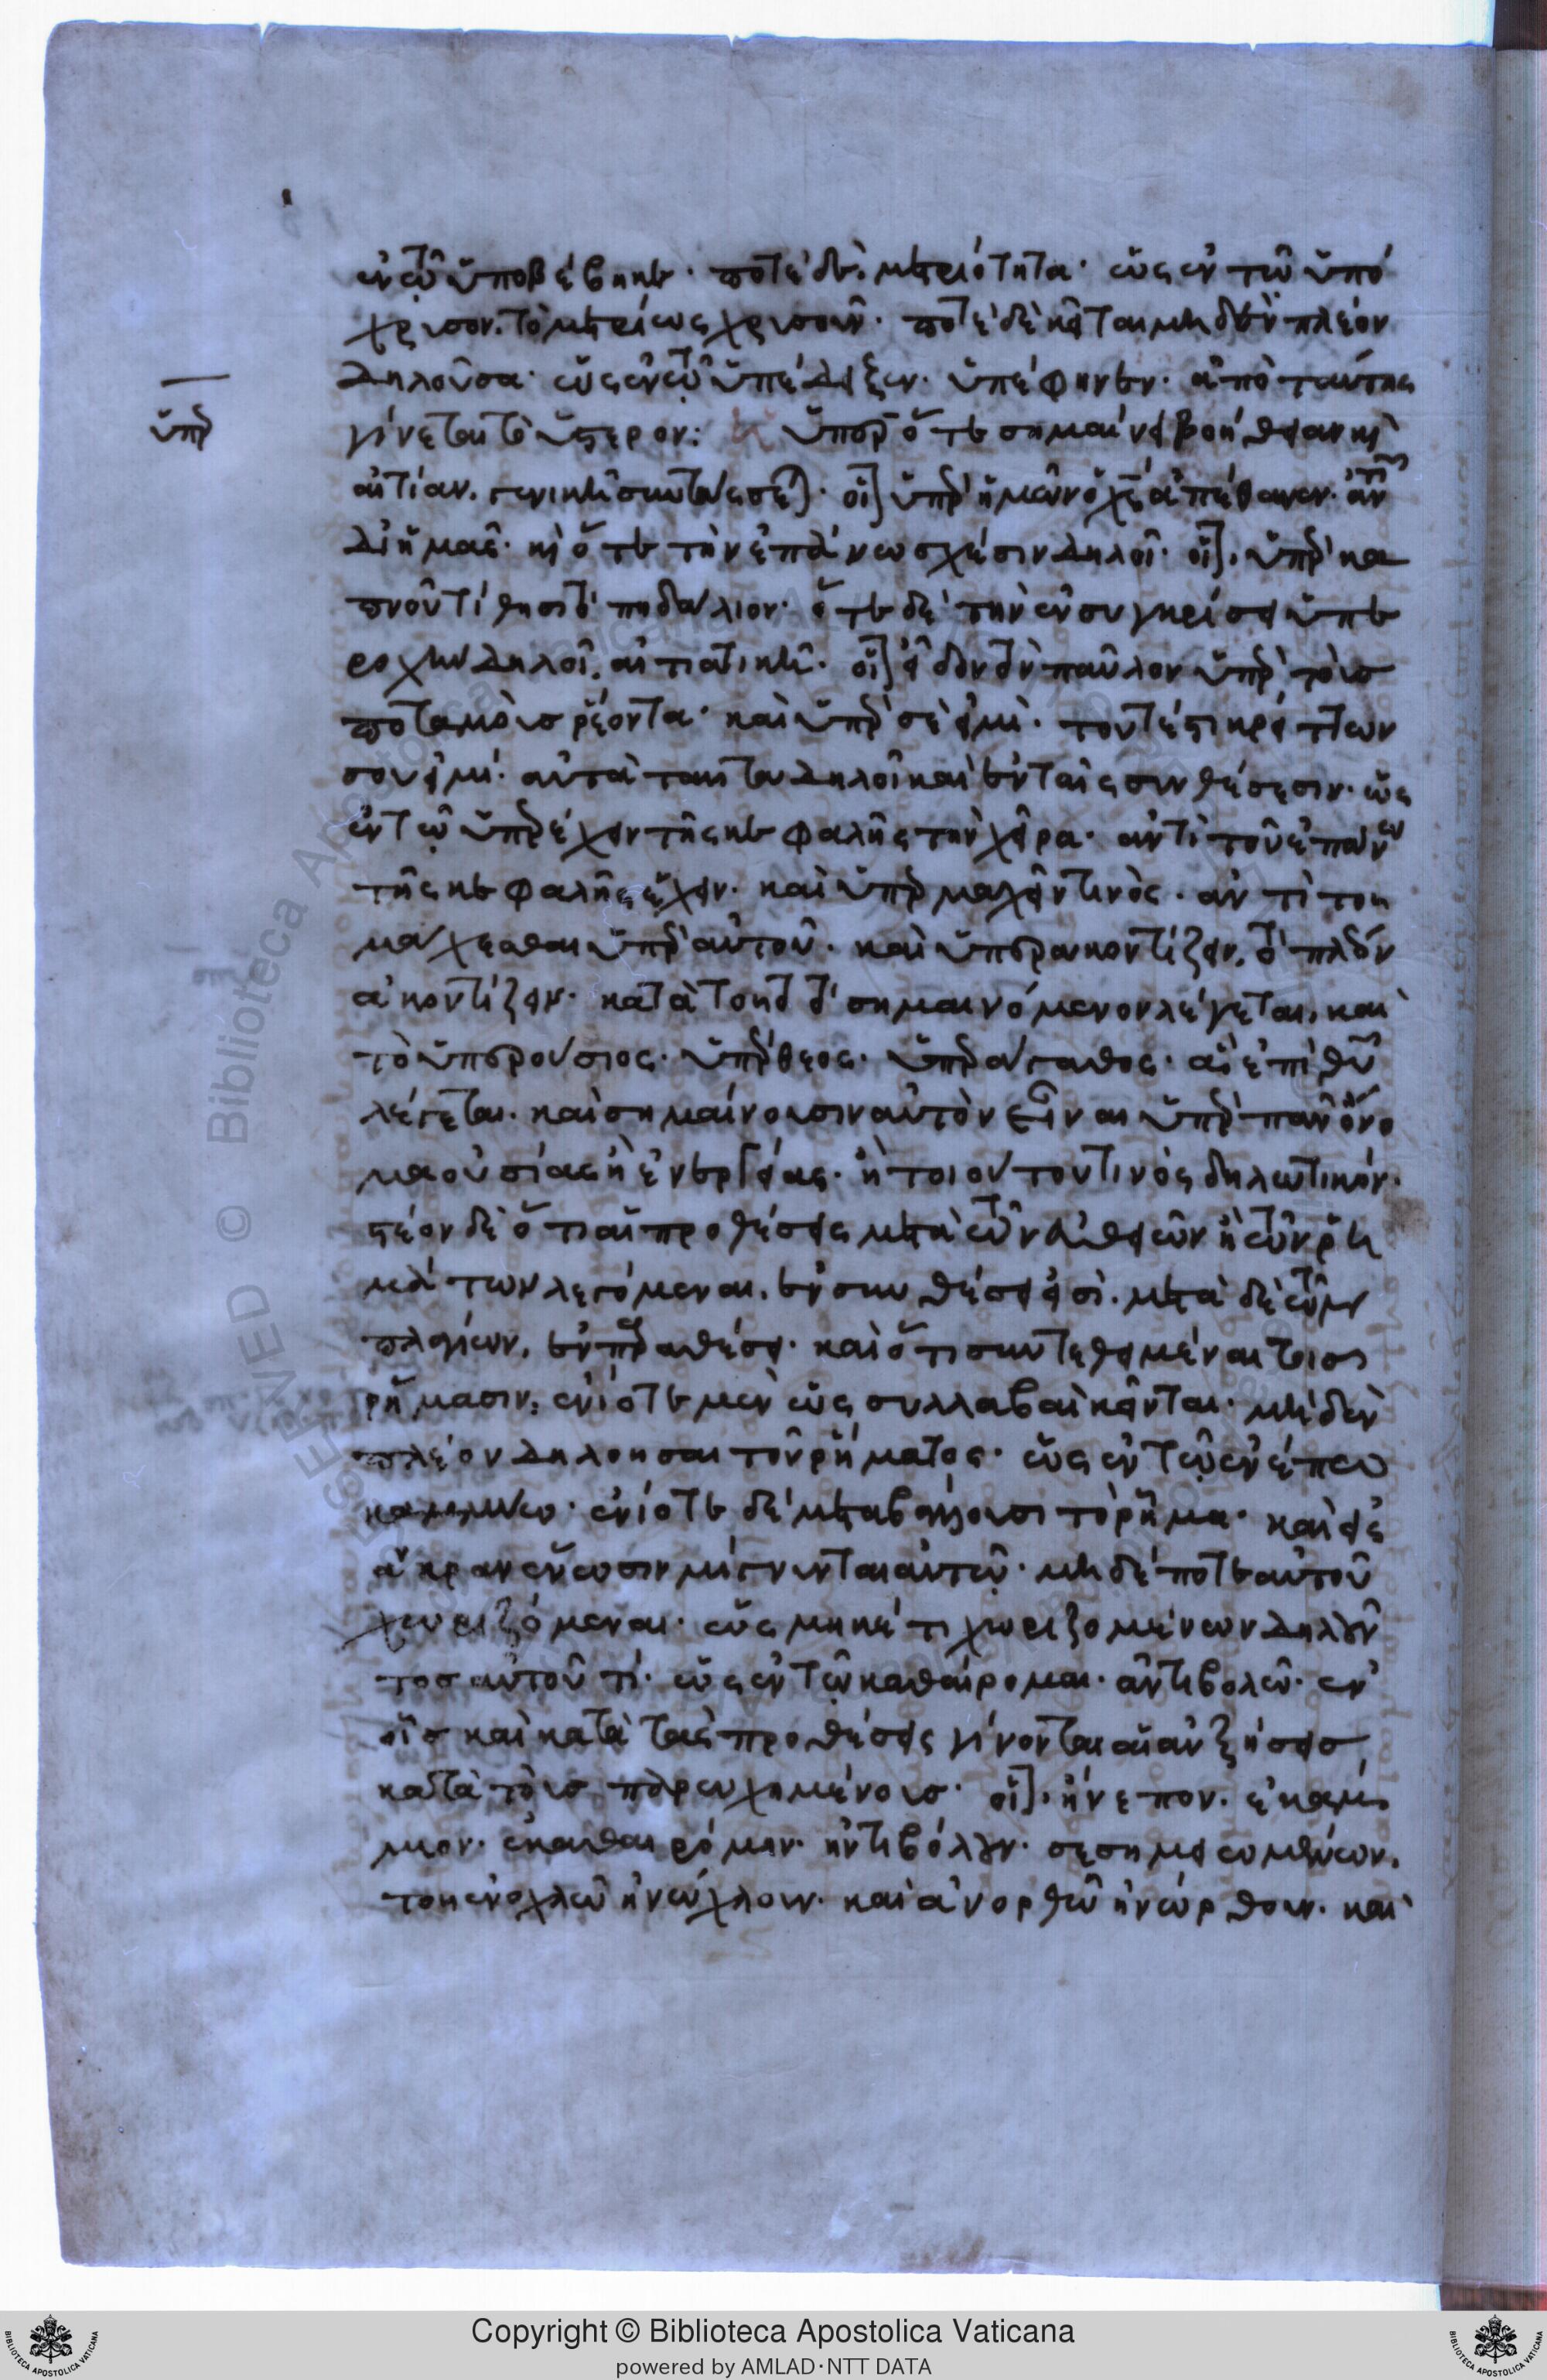 ἐν τῷ ὑποβέβηκε· ποτὲ δὲ μετριότητα· ὡς ἐν τῷ ὑπό
χρισον. τὸ μετρίως χρισον· ποτὲ δὲ κεῖται μηδὲν πλέον
δηλοῦσα· ὡς ἐν τῷ ὑπέδειξεν· ὑπέφηνεν· ἀπὸ ταύτης
γίνεται τὸ ὕστερον:
ὑπὲρ ὅτε σημαίνει βοήθειαν καὶ
ὑπὲρ
αἰτίαν. γενικῇ συντάσσεται· οἷον ὑπὲρ ἡμῶν ὁ χς ἀπέθανεν· ἀντὶ τοῦ
δι' ἡμᾶς· καὶ ὅτε τὴν ἐπάνω σχέσιν δηλοῖ· οἷον. ὑπὲρ κα
πνοῦ τίθησι τὸ πηδάλιον· ὅτε δὲ τὴν ἐν συγκρίσει ὑπε
ροχὴν δηλοῖ. αἰτιατικῇ· οἷον εἶδον τὸν παῦλον ὑπὲρ τοὺς
ποταμοὺς ῥέοντα· καὶ ὑπὲρ σὲ εἰμὶ· τουτέστι κρείττων
σου εἰμί· αὐτὰ ταῦτα δηλοῖ καὶ ἐν ταῖς συνθέσεσιν· ὡς
ἐν τῷ ὑπερέχειν τῆς κεφαλῆς τὴν χεῖρα· ἀντὶ τοῦ ἐπάνω
τῆς κεφαλῆς ἔχειν· καὶ ὑπερμαχεῖν τινός· ἀντὶ τοῦ
μάχεσθαι ὑπὲρ αὐτοῦ· καὶ ὑπερακοντίζειν. τὸ πλέον
ἀκοντίζειν· κατὰ τοῦτο τὸ σημαινόμενον λέγεται. καὶ
τὸ ὑπερούσιος· ὑπέρθεος· ὑπεράγαθος· ἃ ἐπὶ θυ
λέγεται· καὶ σημαίνουσιν αὐτὸν εἶναι ὑπὲρ πᾶν ὄνο
μα οὐσίας ἢ ἐνεργείας· ἢ τοιούτου τινὸς δηλωτικόν·
στέον δὲ ὅτι αἱ προθέσεις μετὰ τῶν εὐθειῶν ἢ τῶν ῥη
μάτων λεγόμεναι. ἐν συνθέσει εἰσὶ. μετὰ δὲ τῶν
πλαγίων. ἐν παραθέσει· καὶ ὅτι συντεθειμέναι τοῖς
ῥήμασιν. ἐνίοτε μὲν ὡς συλλαβαὶ κεῖνται· μηδὲν
πλέον δηλοῦσαι τοῦ ῥήματος· ὡς ἐν τῷ ἐνέπω
καμμύω· ἐνίοτε δὲ μεταβάλλουσι τὸ ῥῆμα· καὶ εἰς
ἄκραν ἕνωσιν μίγνυνται αὐτῷ· μηδέποτε αὐτοῦ
χωριζόμεναι· ὡς μηκέτι χωριζομένων δηλοῦν
τος αὐτοῦ τί· ὡς ἐν τῷ καθαίρομαι· ἀντιβολῶ· ἐν
οἷς καὶ κατὰ τὰς προθέσεις γίνονται αἱ αὐξήσεις
κατὰ τοὺς παρῳχημένους· οἷον. ἤνεπον. ἐκάμ
μυον· ἐκαθαιρόμην· ἠντιβόλουν· σεσημειωμένων.
τοῦ ἐνοχλῶ ἠνώχλουν· καὶ ἀνορθῶ ἠνώρθουν· καὶ
Copyright © Biblioteca Apostolica Vaticana
powered by AMLAD·NTT DATA